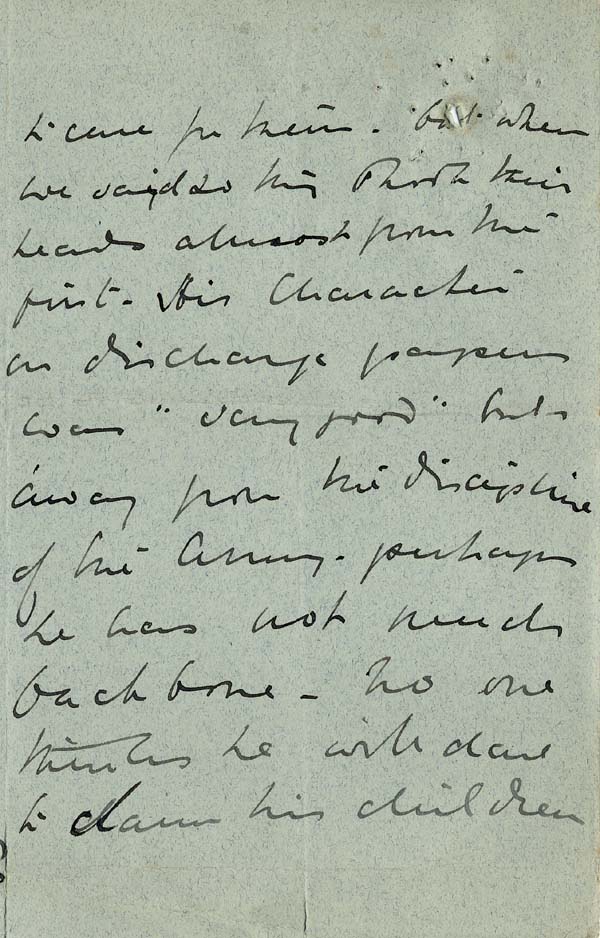 to care for them. but when
we said so they shook their
heads almost from the
first. His Character
on discharge papers
was "very good" but
away from the discipline
of the Army. perhaps
he has not much
backbone - No one
thinks he will dare
to claim his children